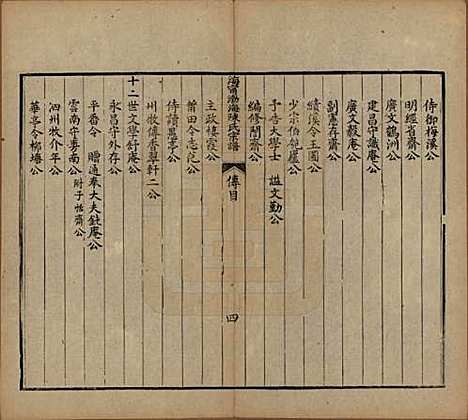 侍御梅溪公
明經省齋公
廣文鶴洲公
建昌守識庵公
廣文毅庵公
副憲存齋公
績溪令王園公
少宗伯匏廬公
予告大學士 謚文勤公
編修闇齋公
海甯渤海陳氏宗譜 傳目 四
主政棲霞公
莆田令志范公
侍讀愚亭公
州牧傅香翠軒二公
十二世文學舒庵公
永昌守外存公
平番令 贈通奉大夫鈍庵公
雲南守夢南公 附子恬齋公
泗州牧介年公
華亭令柳塘公